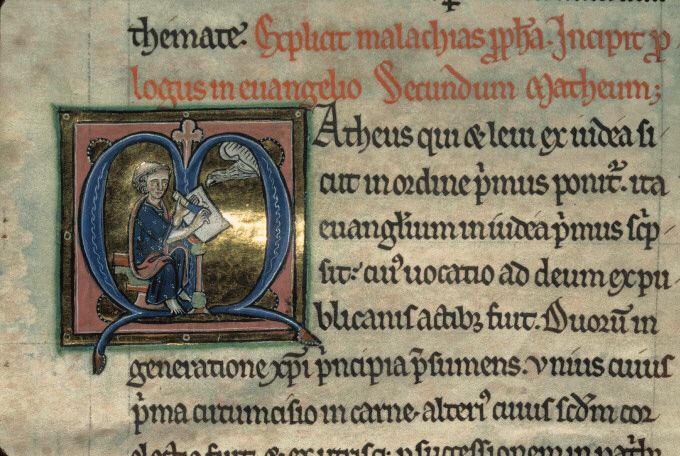 themate. Explicit malachias ꝓph̄a. Incipit ꝓ
logus in euangelio Secundum Matheum;
Matheus qui & leui ex iudea si
cut in ordine p̄mus ponit᷑. ita
euangl̄ium in iudea p̄mus sc̄p
sit. cui᷒ uocatio ad deum ex pu
blicanis actibꝫ fuit. Duorū in
generatione xp̄i p̄ncipia p̄sumens. vnius cuius
p̄ma circumcisio in carne. alteri᷒ cuius scd̄m cor